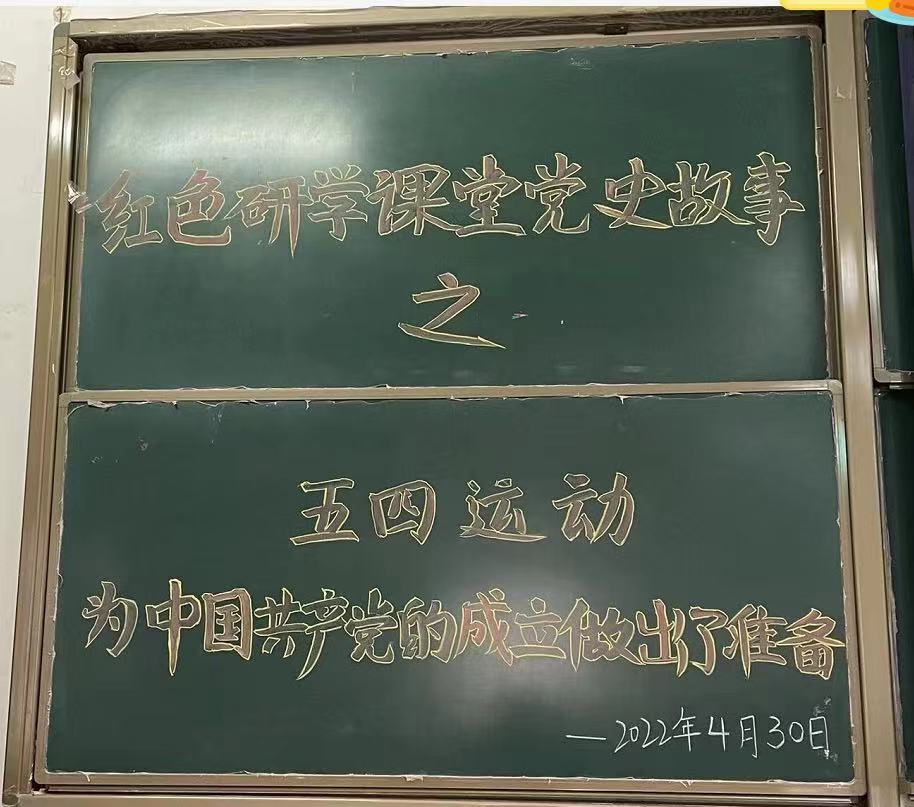 红色研学课堂党史故事
之
五四运动
为中国共产党的成立做出了准备
—2022年4月30日